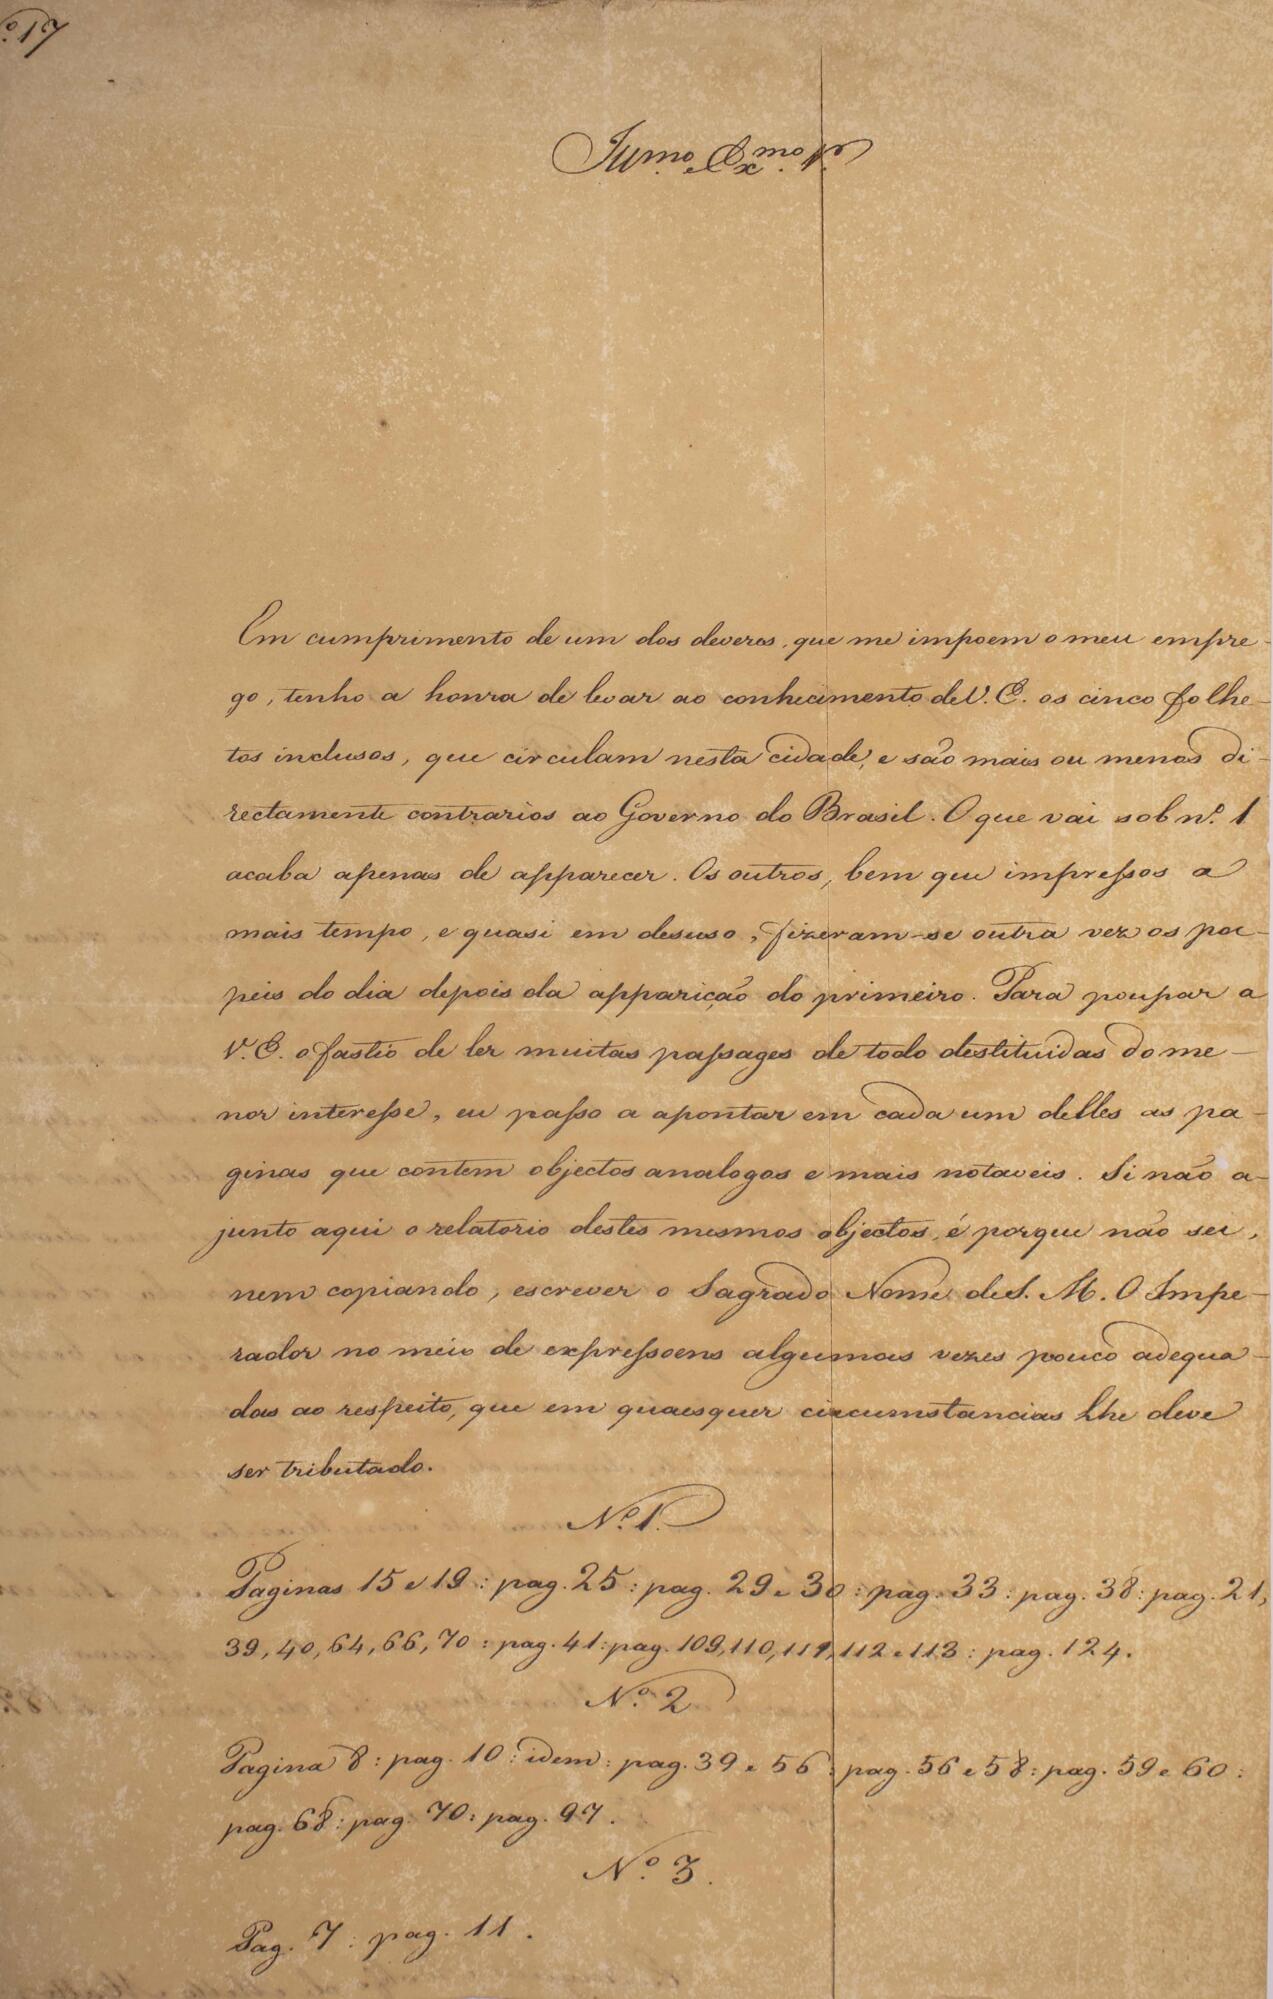 º. 17
Illmo. e Exmo. Sr.
Em cumprimento de um dos deveres, que me impoem o meu empre-
go, tenho a honra de levar ao conhecimento de V. E. os cinco folhe-
tos inclusos, que circulam nesta cidade, e são mais ou menos di-
rectamente contrarios ao Governo do Brasil. O que vai sob nº. 1
acaba apenas de apparecer. Os outros, bem que impressos a
mais tempo, e quasi em desuso, fizeram-se outra vez os pa-
peis do dia depois da apparição do primeiro. Para poupar a
V. E. o fastio de ler muitas passages de todo destituidas do me-
nor interesse, eu passo a apontar em cada um delles as pa-
ginas que contem objectos analogos e mais notaveis. Si não a-
junto aqui o relatorio destes mesmos objectos, é porque não sei,
nem copiando, escrever o Sagrado Nome de S. M. O Impe-
rador no meio de expressoens algumas vezes pouco adequa-
das ao respeito, que em quaesquer circumstancias Lhe deve
ser tributado.
Nº. 1.
Paginas 15 e 19: pag. 25: pag. 29 e 30: pag. 33: pag. 38: pag. 21,
39, 40, 64, 66, 70: pag. 41: pag. 109, 110, 111, 112 e 113: pag. 124.
Nº. 2
Pagina 8: pag. 10: idem: pag. 39 e 56: pag. 56 e 58: pag. 59 e 60:
pag. 68: pag. 70: pag. 97.
Nº. 3.
Pag. 7: pag. 11.